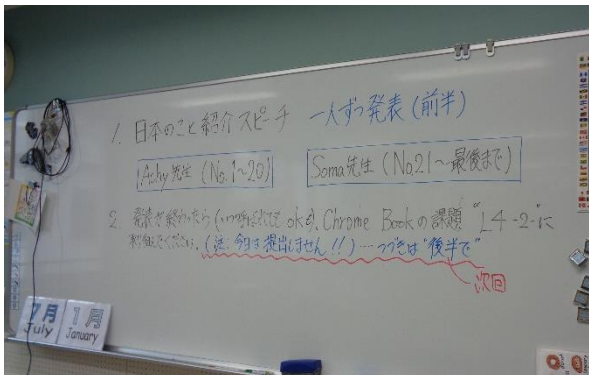 1. 日本のこと紹介スピーチ 一人ずつ発表(前半)
Achy先生 (No.1~20)
Soma先生 (No.21~最後まで)
2. 発表が終わったら (いつ呼ばれても ok!), Chrome Bookの課題 "L4-2-"に
ください. (注:今日は提出しません!!)…つづきは"後半で"
次回
7月
July
1月
January